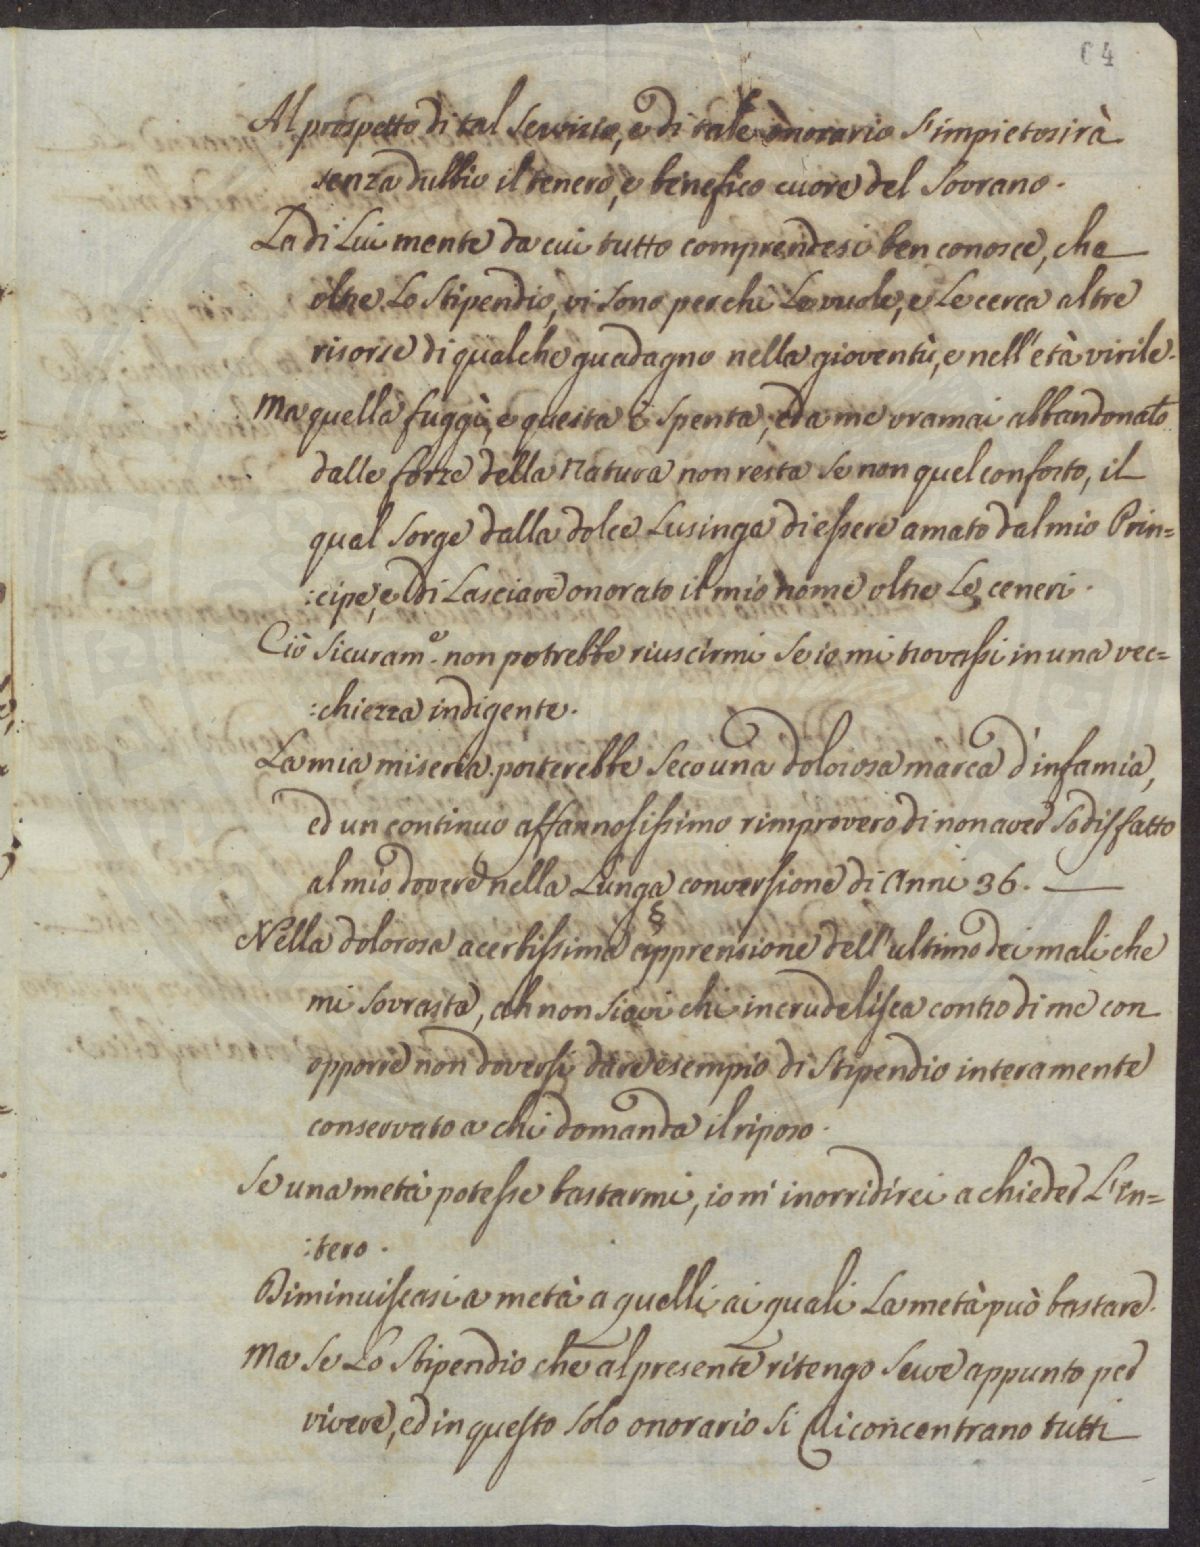 64
Al prospetto di tal servizio, e di tale onorario s'impietosirà
senza dubbio il tenero, e benefico cuore del Sovrano.
La di Lui mente da cui tutto comprendesi ben conosce, che
oltre Lo Stipendio, vi sono per chi Le vuole, e Le cerca altre
risorse di qualche guadagno nella gioventù, e nell'età virile.
Ma quella fuggì, e questa è spenta, ed a me oramai abbandonato
dalle forze della Natura non resta se non quel conforto, il
qual sorge dalla dolce Lusinga di essere amato dal mio Prin=
:cipe, e di Lasciare onorato il mio nome oltre Le ceneri.
Ciò sicuram.e non potrebbe riuscirmi se io mi trovassi in una vec=
:chiezza indigente.
La mia miseria porterebbe seco una dolorosa marca d'infamia,
ed un continuo affannosissimo rimprovero di non aver sodisfatto
al mio dovere nella Lunga conversione di Anni 36. —
§
Nella dolorosa acerbissima apprensione dell'ultimo dei mali che
mi sovrasta, ah non siavi chi incrudelisca contro di me con
opporre non doversi dare esempio di Stipendio interamente
conservato a chi domanda il riposo.
Se una metà potesse bastarmi, io m'inorridirei a chieder L'in=
:tero.
Diminuiscasi a metà a quelli ai quali La metà può bastare.
Ma se Lo Stipendio che al presente ritengo serve appunto per
vivere, ed in questo solo onorario si riconcentrano tutti